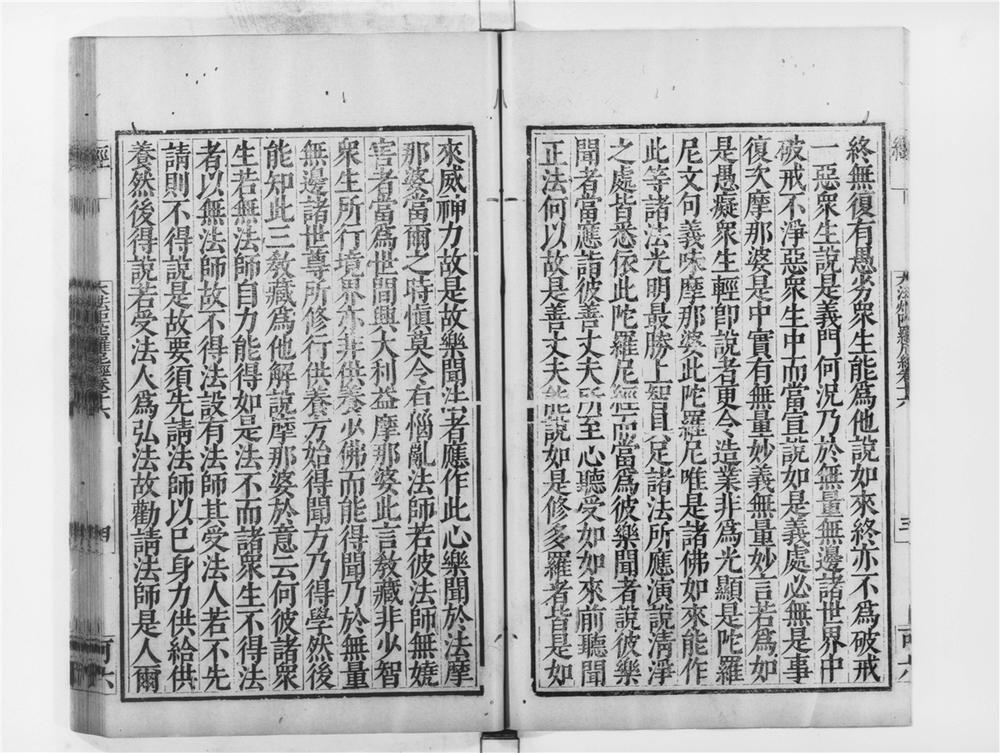 終無復有愚少衆生能爲他說如來終亦不爲破戒
一惡衆生說是義門何況乃於無量無邊諸世界中
破戒不淨惡衆生中而當宣說如是義處必無是事
復次摩那婆是中實有無量妙義無量妙言若爲如
是愚癡衆生輕卽說者更令造業非爲光顯是陀羅
尼文句義味摩那婆此陀羅尼唯是諸佛如來能作
此等諸法光明最勝上智具足諸法所應演說清淨
之處皆悉依此陀羅尼經而當爲彼樂聞者說彼樂
聞者當應詣彼善丈夫所至心聽受如如來前聽聞
正法何以故是善丈夫能說如是修多羅者皆是如
來威神力故是故樂聞法者應作此心樂聞於法摩
那婆當爾之時愼莫令有惱亂法師若彼法師無嬈
害者當爲世間興大利益摩那婆此言敎藏非少智
衆生所行境界亦非供養少佛而能得聞乃於無量
無邊諸世尊所修行供養方始得聞方乃得學然後
能知此三敎藏爲他解說摩那婆於意云何彼諸衆
生若無法師自力能得如是法不而諸衆生不得法
者以無法師故不得法設有法師其受法人若不先
請則不得說是故要須先請法師以已身力供給供
養然後得說若受法人爲弘法故勸請法師是人爾